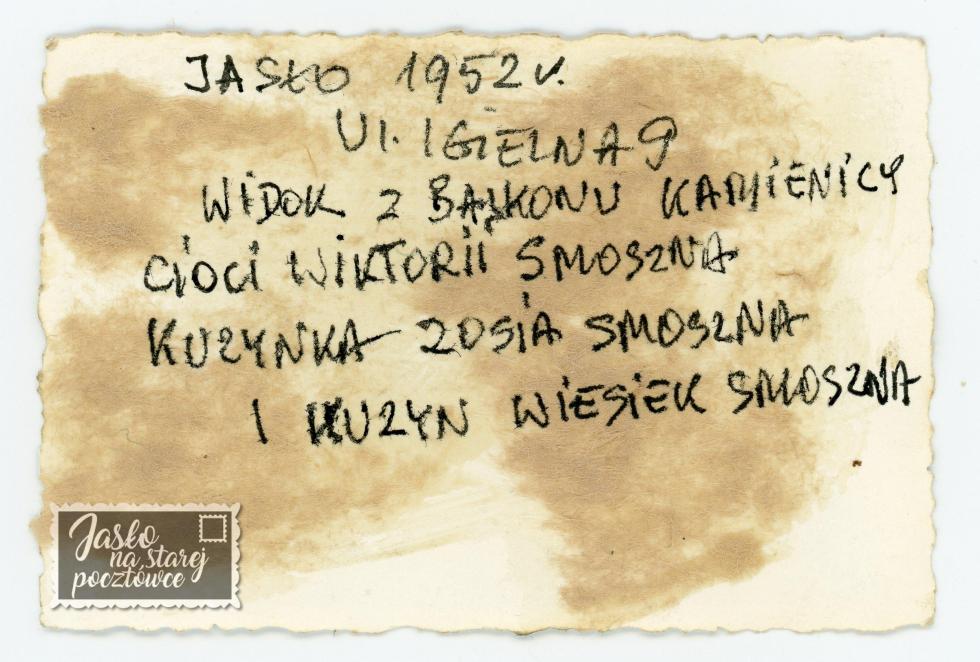 JASŁO 1952 r.
Ul. IGIELNA 9
WIDOK Z BALKONU KAMIENICY
CIOCI WIKTORII SMOSZNA
KUZYNKA ZOSIA SMOSZNA
I KUZYN WIESIEK SMOSZNA
Jasło
na starej
pocztówce